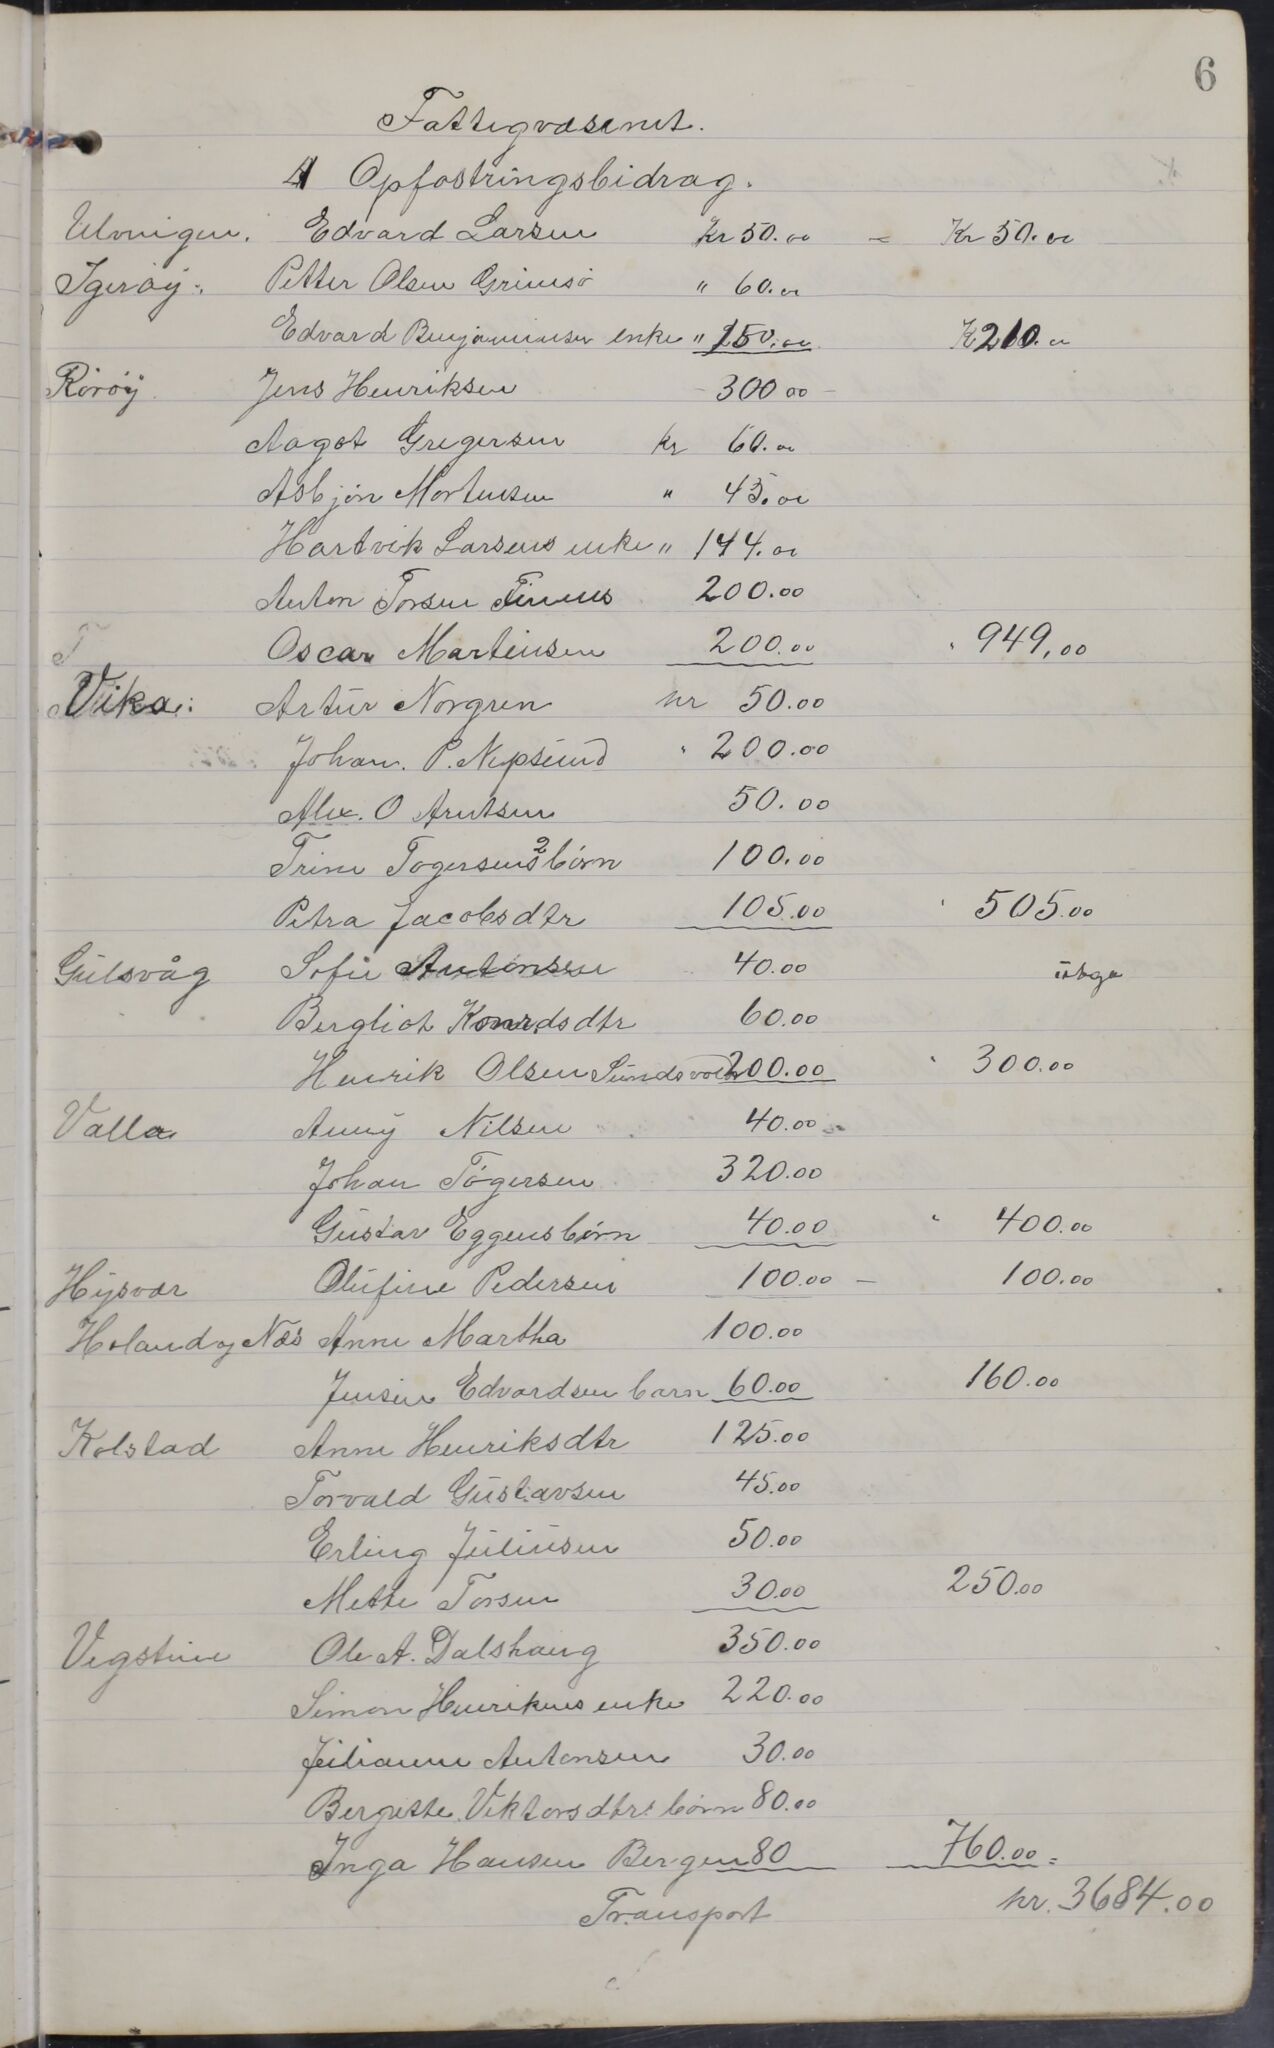 6
Fattigvæsenet.
A Opfostringsbidrag.
Ulvingen. Edvard Larsen Kr 50.00 = Kr 50.00
Igerøy. Petter Olsen Grimsø " 60.00
Edvard Benjaminsen enke " 150.00 Kr 210.00
Rørøy Jens Henriksen - 300 00 -
Aagot Gregersen kr 60.00
Asbjørn Mortensen " 45.00
Hartvik Larsens enke " 144.00
Anton Torsen 200.00
Oscar Martinsen 200.00 " 949,00
Vika: Artur Norgren kr 50.00
Johan. P. Nepsund " 200.00
Alex. O Arntsen 50.00
Trine Togersens 2 børn 100.00
Petra Jacobsdtr 105.00 " 505.00
Gulsvåg Sofie Antonsen 40.00
Bergliot Konrdsdtr 60.00
Henrik Olsen 200.00 " 300.00
Valla Anny Nilsen 40.00
Johan Tøgersen 320.00
Gustav Eggens børn 40.00 " 400.00
Hysvær Olufine Pedersen 100.00 - 100.00
Holand og Næs Anne Martha 100.00
Jensine Edvardsen barn 60.00 160.00
Kolstad Anne Henriksdtr 125.00
Torvald Gustavsen 45.00
Erling Juliusen 50.00
Mette Torsen 30.00 250.00
Vegsteine Ole A. Dalshaug 350.00
Simon Henriksens enke 220.00
Julianne Antonsen 30.00
Bergette Viktorsdtrs børn 80.00
Inga Hansen Bergen 80 760.00 =
Transport kr. 3684.00